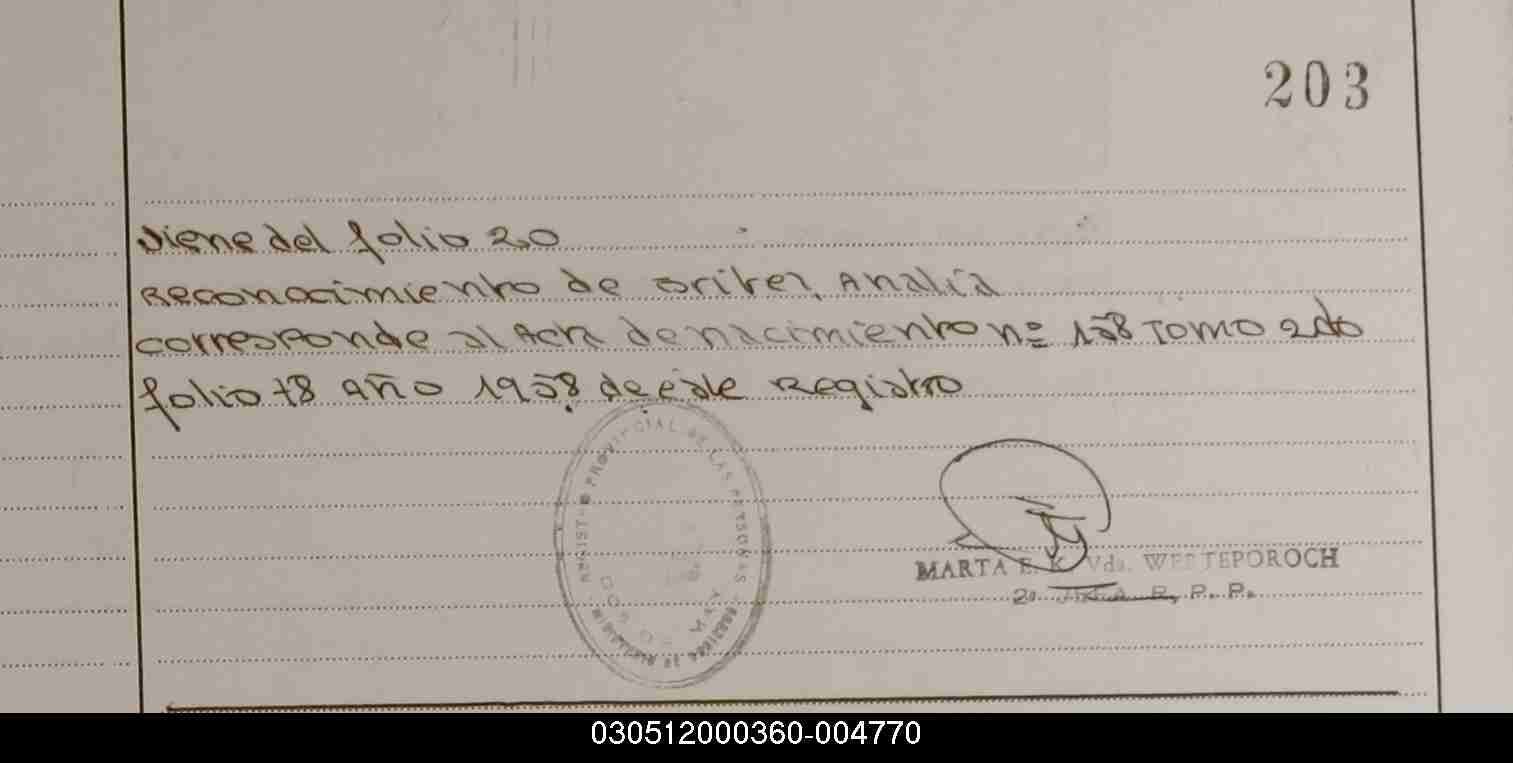 203
viene del folio 20
Reconocimiento de Analía
corresponde al Acta de nacimiento nº 158 Tomo 2do
folio 78 año 1958 de este Registro
REGISTRO PROVINCIAL DE LAS PERSONAS
MARTA E. K. Vda. WESTEPOROCH
2o. JEFA R. P. P.
030512000360-004770